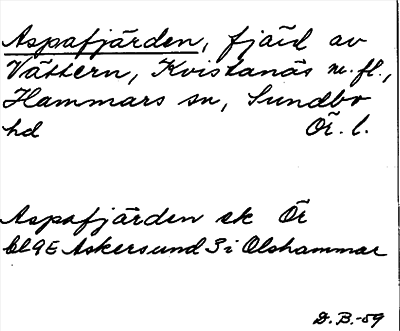 Aspafjärden, fjärd av
Vättern, Kvistanäs m.fl.,
Hammars sn, Sundbo
hd Ör. l.
Aspafjärden ek Ör
bl 9E Askersund S i Olshammar
D.B.-59